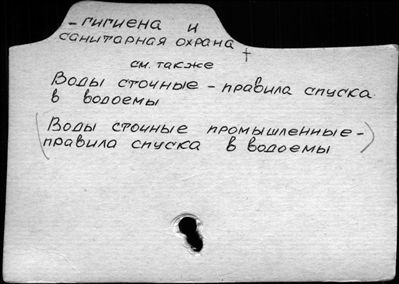 - гигиена и
санитарная охрана +
см. также
Воды сточные - правила спуска
в водоемы
(Воды сточные промышленные -
правила спуска в водоемы)